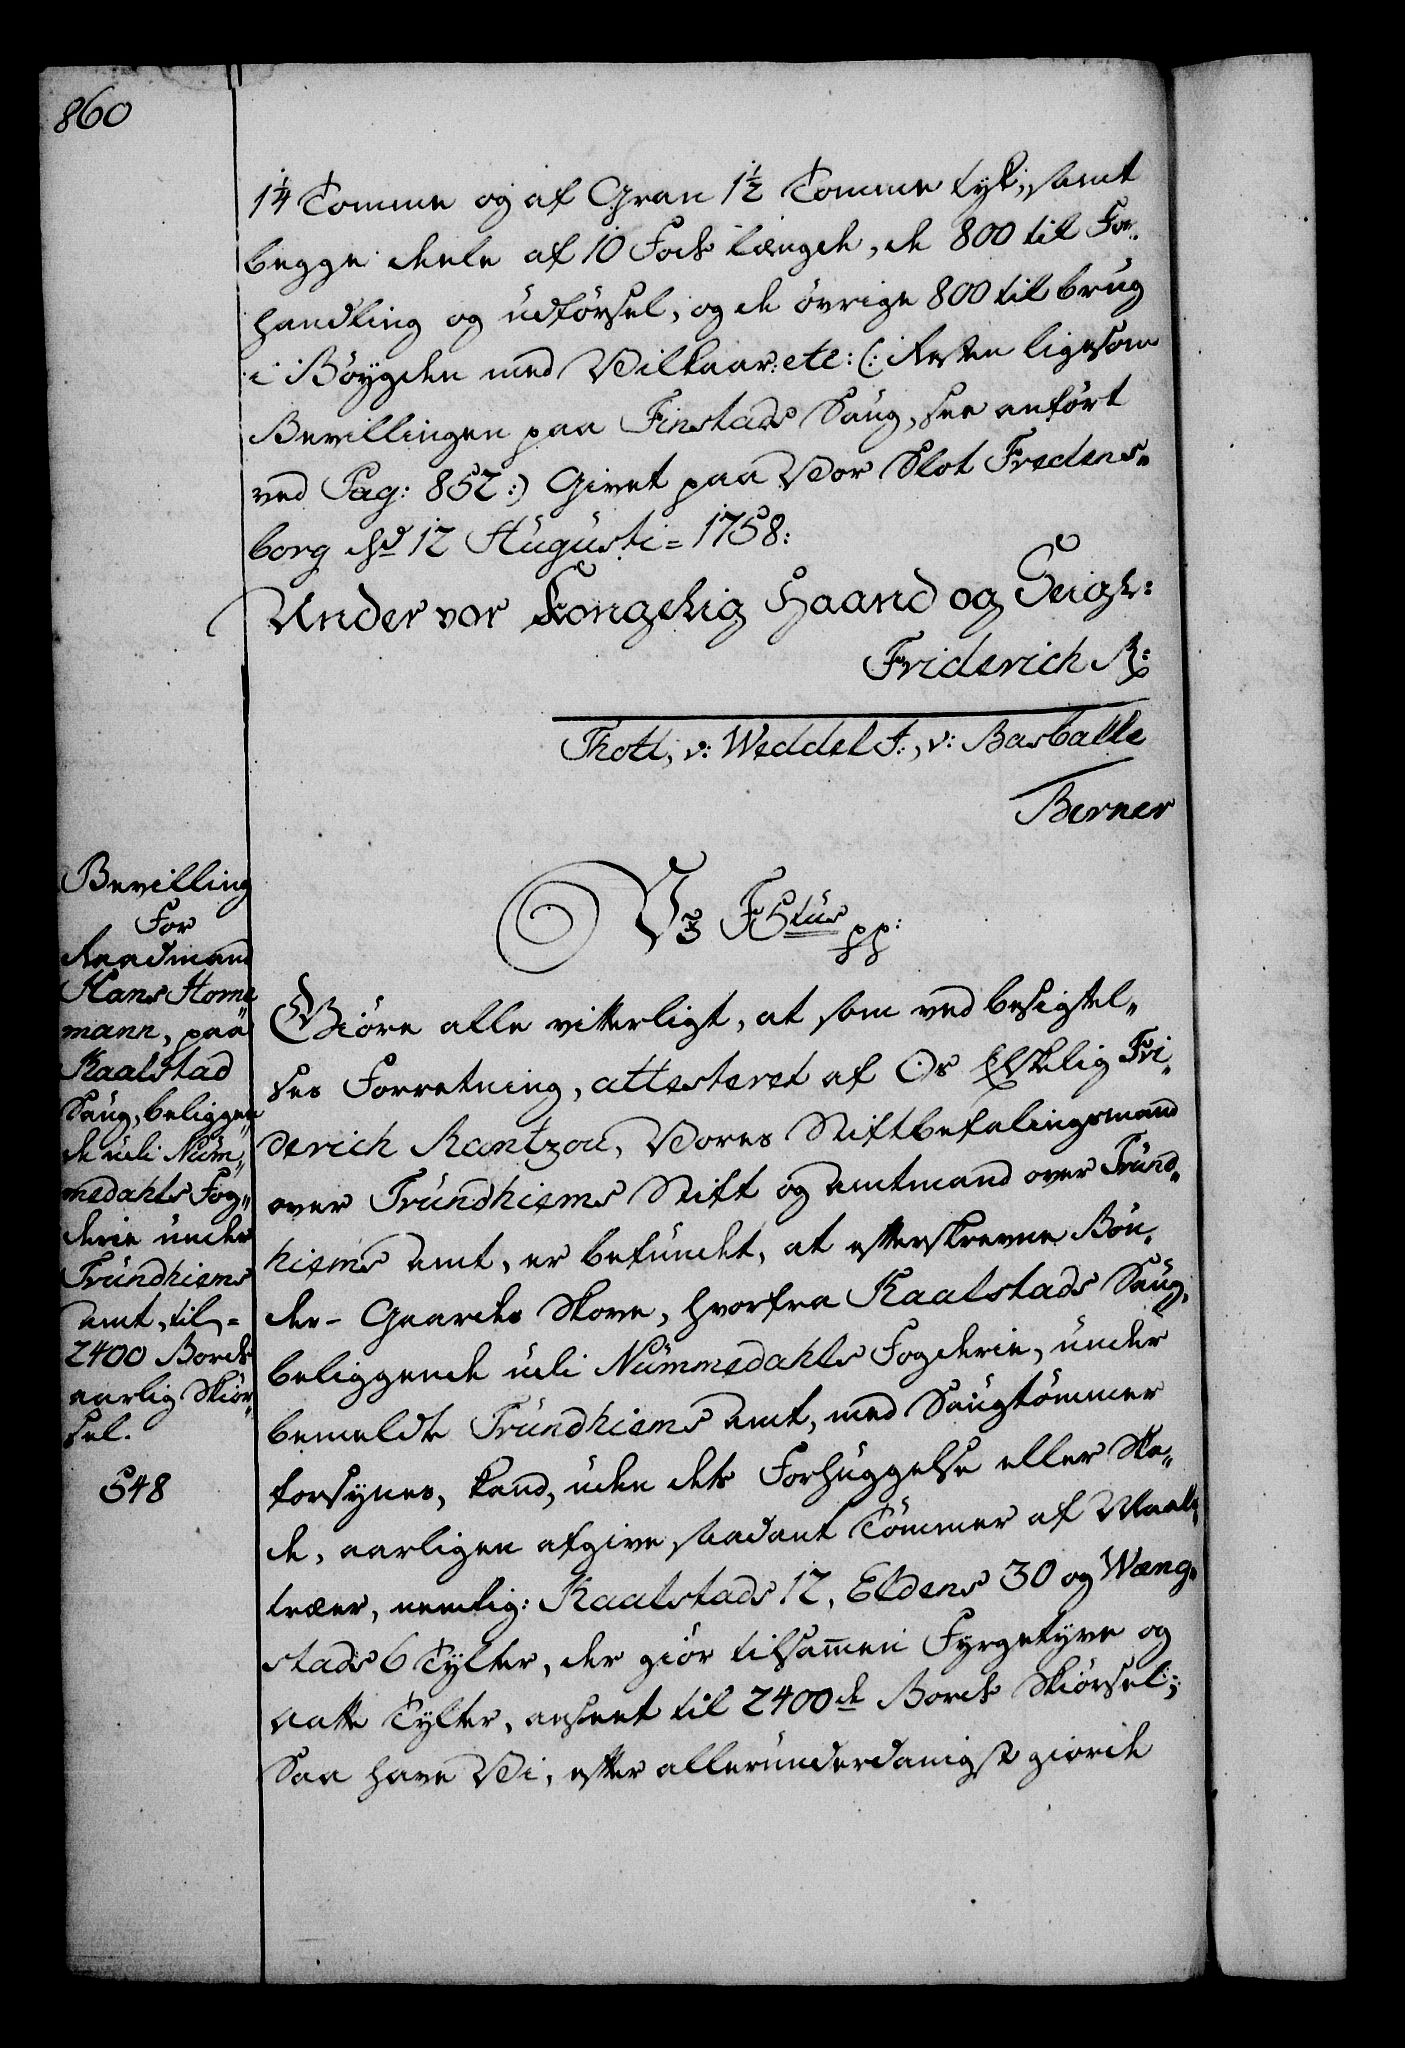 860
1¼ Tomme og af Gran 1½ Tomme tyk, samt
begge deele af 10 Fods længde, de 800 til For-
handling og udförsel, og de övrige 800 til brug
i Böygden med Vilkaar: etc: (: Resten ligesom
Bevillingen paa Finstads Saug, see anfört
ved Pag: 852:) Givet paa Vor Slot Fredens-
borg d. 12 Augusti = 1758:
Under vor Kongelig Haand og Seigl:
Friderich R:
Thott, v: Weddel F:, v: Barballe
Berner
Bevilling
For
Raadmand
Hans Horne
mann, paa
Kaalstad
Saug, beliggen
de udi Num-
medahls Fog-
derie under
Trundhiems
Amt, til =
2400 Bords
aarlig Skiör-
sel.
548
V3 F5tus pp:
Giöre alle vitterligt, at som ved besigtel-
ses Forretning, attesteret af Os Elskelig Fri-
derich Rantzou, Vores Stiftbefalingsmand
over Trundhiems Stift og Amtmand over Trund-
hiems Amt, er befundet, at efterskrevne Bön-
der-Gaardes Skove, hvorfra Kaalstads Saug,
beliggende udi Nummedahls Fogderie, under
bemeldte Trundhiems Amt, med Saugtömmer
forsynes, kand, uden dets Forhuggelse eller Ska-
de, aarligen afgive saadant Tömmer af Maalt-
træer, nemlig: Kaalstads 12, Eldens 30 og Wæng-
stads 6 Tylter, der giör tilsamen Fyrgetyve og
Aatte Tylter, anseet til 2400de Bords Skiörsel;
Saa have Vi, efter allerunderdanigst giorde